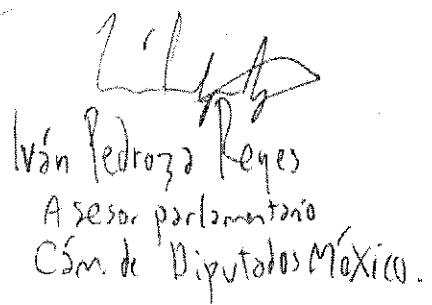 Iván Pedroza Reyes
Asesor parlamentario
Cám. de Diputados México.